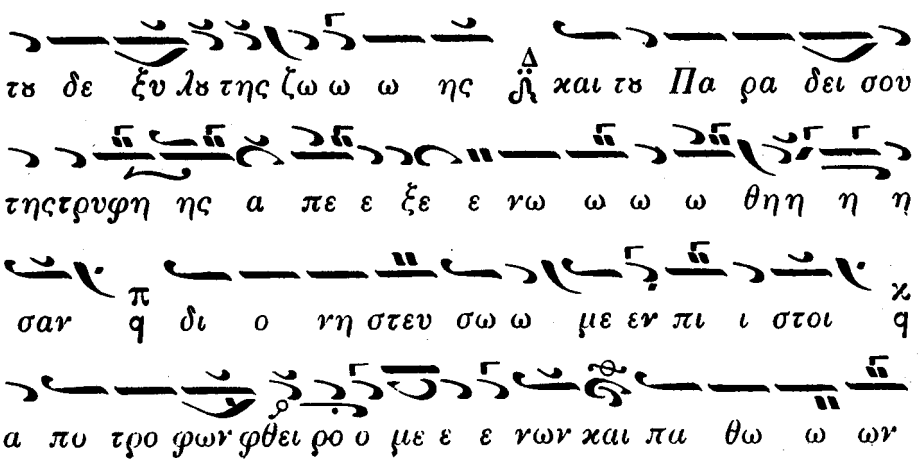 τȣ δε ξυ λȣ της ζω ω ω ης Δ και τȣ Πα ρα δει σου
της τρυφη ης α πε ε ξε ε νω ω ω ω θη η η η
σαν π q δι ο νη στευ σω ω με εν πι ι στοι κ q
α πο τρο φων φθει ρο ο με ε ε νων και πα θω ω ων